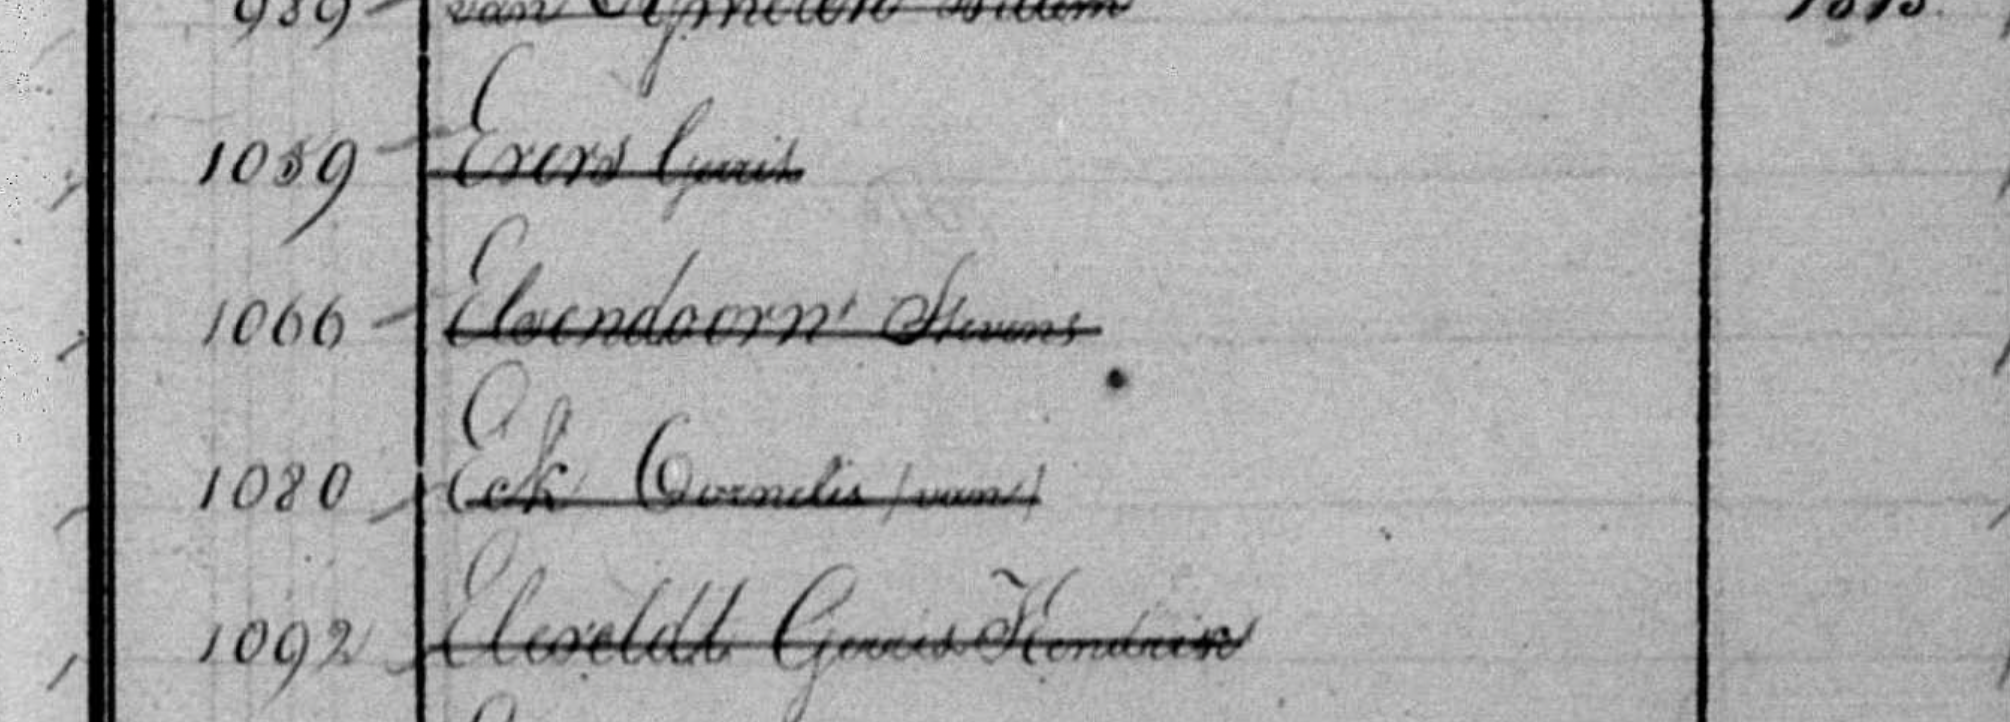 989 van Willem
1059 Evers Gerrit
1066 Elsendoorn Stevens
1080 Eck Cornelis (van)
1092 Elsveldt Gerrit Hendrik